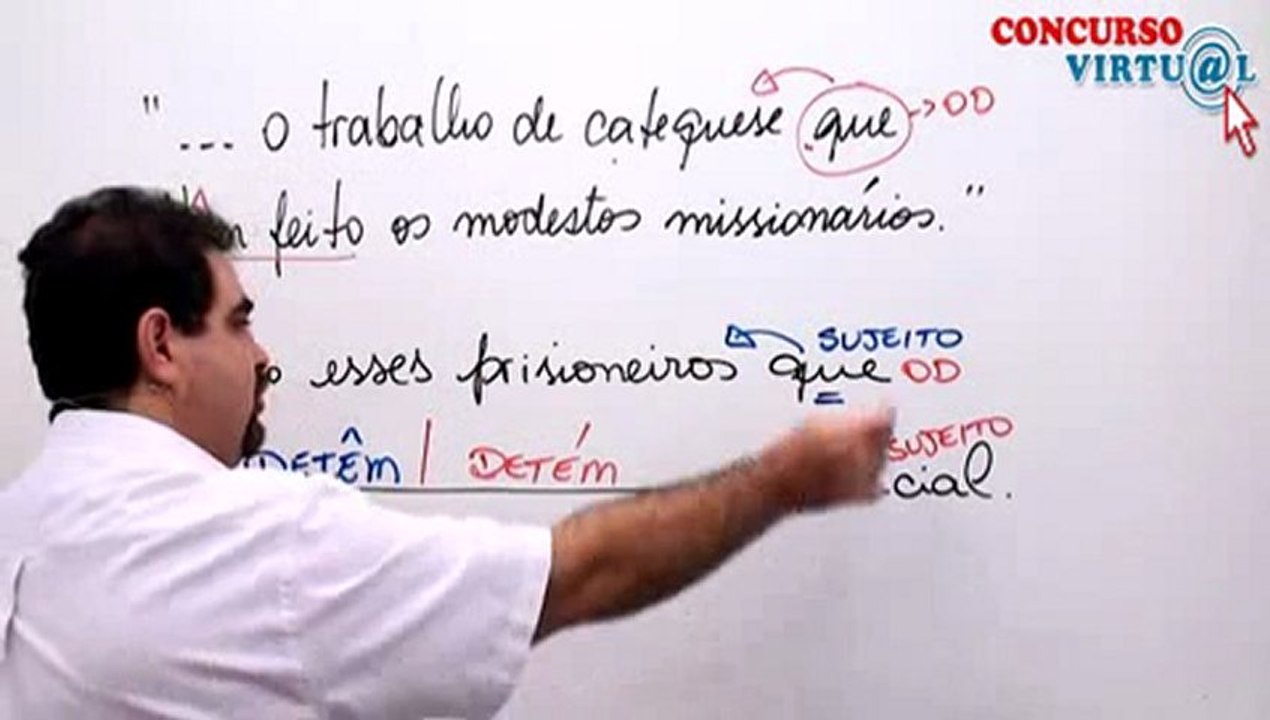 CONCURSO
VIRTU@L
"... o trabalho de catequese que → OD
feito os modestos missionários."
SUJEITO
esses prisioneiros que OD
SUJEITO
DETÊM | DETÉM cial.